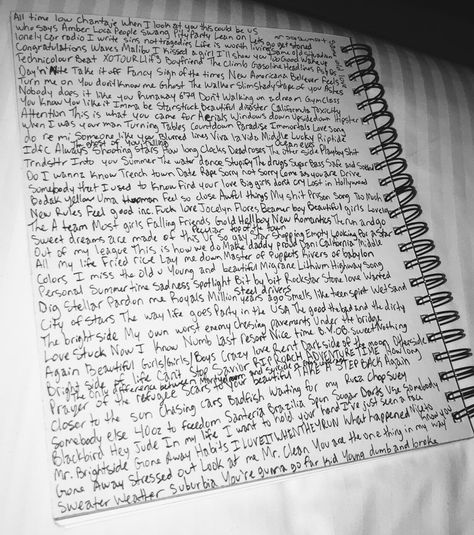 All time low Chantaje When I look at you this could be us
who says Amber Loca People Swang Pity Party Lean on Lets go get stoned
lonely car radio I write sins not tragedies Life is worth living Same old situation
Congratulations Waves Malibu I kissed a girl I'll show you Too Good Wake up
Technicolour Beat XO TOUR Llif3 Boyfriend The Climb Gasoline Headlines
Day'n'Nite Take it off Fancy Sign of the times New Americana Believer Feels
Turn me on You don't know me Ghost The Walker Slim Shady Shape of you Ashes
Nobody does it like you runaway 679 Don't Walking on a dream Gym Class
You Know You like it Imma be Starstruck Beautiful disaster California Toxicity
Attention This is what you came for Aerials Windows down Upside down Hipster
When I was your man Turning Tables Countdown Paradise Immortals Love song
do re mi Someone like you Blurred lines Viva la Vida Middle Lucky Riptide
the ghost of you Ocean eyes
Idfc Always Shooting Stars How long Clocks Dead roses The other side Monkey Shit
Trndsttr Into you Summer The water dance Stupify The drugs Sugar Bass Safe and Sound
Do I wanna Know Trench town Date Rape Sorry not Sorry Come as you are Drive
Somebody that I used to Know Find your love Big girls don't cry Lost in Hollywood
Bodak yellow Uma Feel so close Awful things My shit Prison Song Too Much
New Rules Feel good inc. Fuck love Jocelyn Flores Beamer boy Beautiful girls Lovely
The A team Most girls Falling Friends Gold Hellboy New Romantics The run and go
Sweet dreams are made of this U say Star Shopping Empty Looking for a Star
top of the town
Out of my league This is how we do Make daddy proud Dani California Middle
All my life Fried rice Lay me down Master of Puppets Rivers of babylon
Colors I miss the old u Young and beautiful Migraine Lithium Highway Song
Personal Summertime sadness Spotlight Bit by bit Rockstar Stone love Wasted
Steel drivers
Dig Stellar Pardon me Royals Million years ago Smells like teen spirit Wet sand
City of stars The way life goes Party in the USA The good the bad and the dirty
The bright side My own worst enemy Dressing pavements Under the bridge
Love Stuck Now I Know Numb Last Resort Nice time BYOB Sweet Nothing
Again Beautiful Girls/Girls/Boys Crazy love Reent Dark side of the moon Otherside
Bright side of life Can't Stop Savior RIP ROACH ADVENTURE TIME How long
The only difference between martyrdom and suicide is
Prayer of the refugee Scars to your beautiful STEP BACK Again
Closer to the sun Chasing cars Badfish Waiting for my Ruca Chop suey
Somebody else 40oz to freedom Santeria Brazilia Spun Sugar Darks Use Somebody
Blackbird Hey Jude In my life I want to hold your hand I've just seen a face
Mr. Brightside Gone Away Habits I LOVE IT WHEN THEY RUN What happened
Gone Away Stressed out Look at me Mr. Clean You are the one thing in my way
Sweater weather suburbia You're gunna go far kid Young dumb and broke